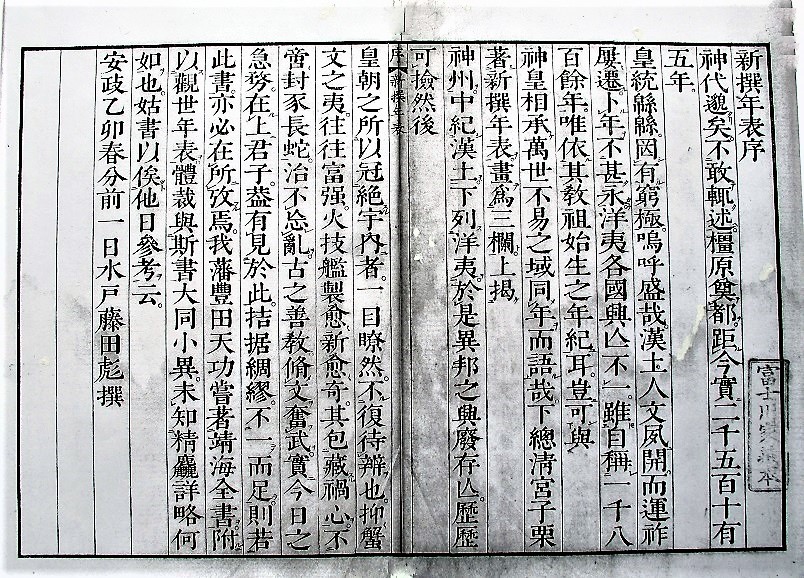 新撰年表序
神代邈矣不敢輒述橿原奠都距今實二千五百十有
五年
皇統緜緜罔有窮極嗚呼盛哉漢土人文夙開而運祚
屢遷卜年不甚永洋夷各國興亾不一雖自稱一千八
百餘年唯依其敎祖始生之年紀耳豈可與
神皇相承萬世不易之域同年而語哉下總淸宮子栗
著新撰年表畫爲三欄上揭
神州中紀漢土下列洋夷於是異邦之興廢存亾歷歷
可撿然後
序 新撰年表
皇朝之所以冠絶宇內者一目瞭然不復待辨也抑蟹
文之夷往往富强火技艦製愈新愈奇其包藏禍心不
啻封豕長蛇治不忘亂古之善敎脩文奮武實今日之
急務在上君子葢有見於此拮据綢繆不一而足則若
此書亦必在所攷焉我藩豐田天功嘗著靖海全書附
以觀世年表體裁與斯書大同小異未知精麤詳略何
如也姑書以俟他日參考云
安政乙卯春分前一日水戸藤田彪撰